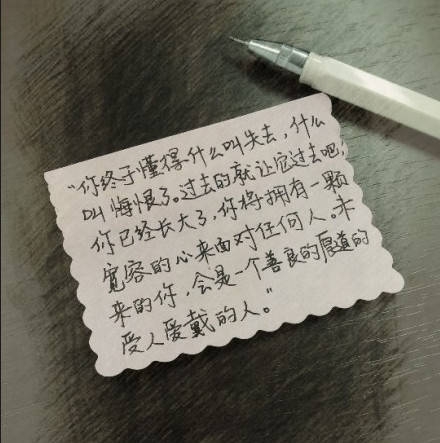 “你终于懂得什么叫失去，什么
叫悔恨了。过去的就让它过去吧，
你已经长大了，你将拥有一颗
宽容的心来面对任何人。未
来的你，会是一个善良的厚道的
受人爱戴的人。”